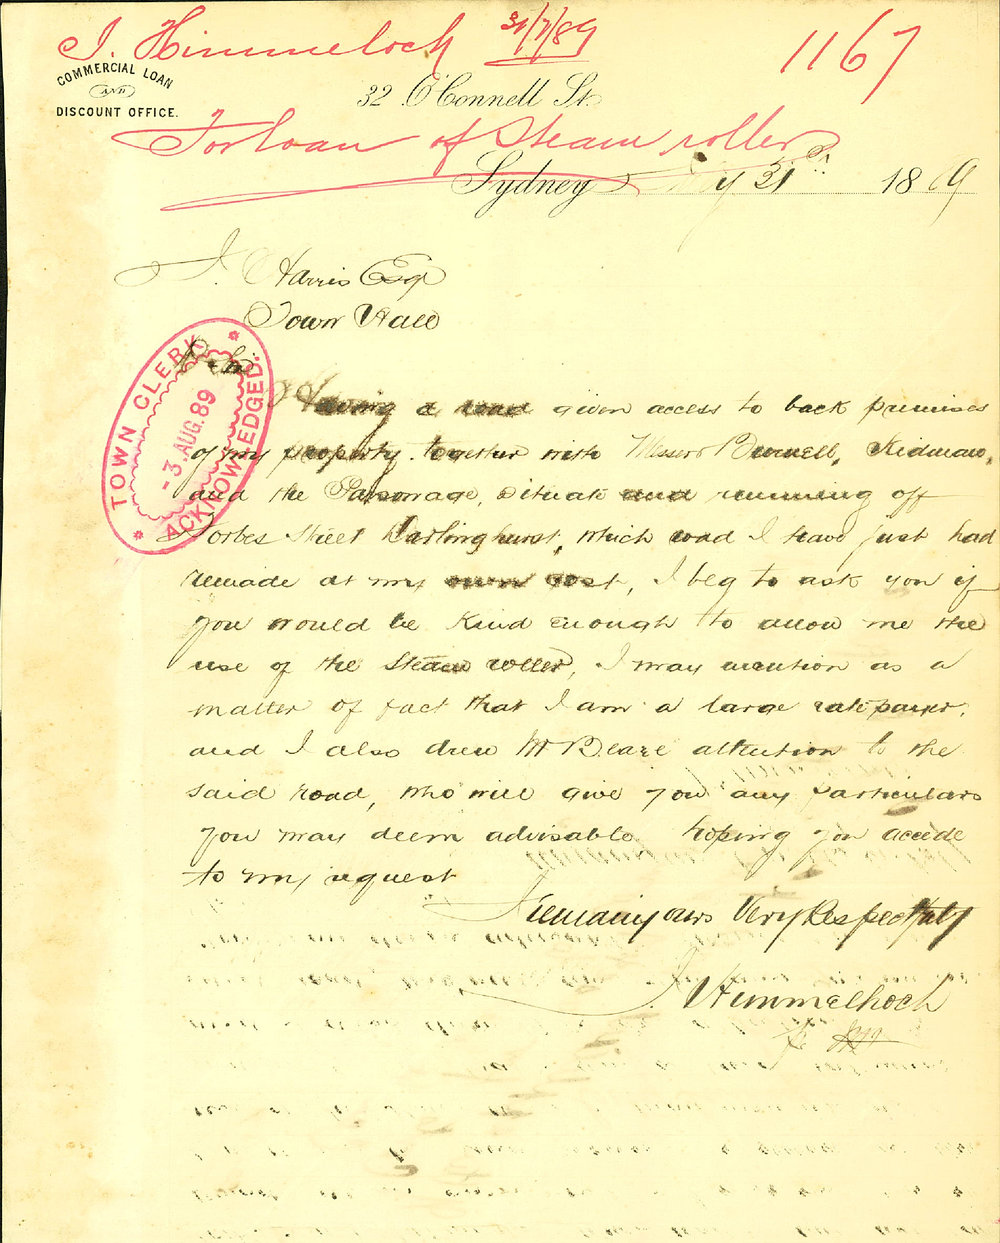 J. Himmeloch 31/7/89
1167
COMMERCIAL LOAN
AND
DISCOUNT OFFICE.
32 O'Connell St.
For loan of Steam roller
Sydney 31st 1889
J. Harris Esq
Town Hall
Sir
Having a road given access to back premises
of my property together with Messrs Burnell, Kidman,
and the Parsonage, situate and running off
Forbes Street Darlinghurst, which road I have just had
remade at my own cost, I beg to ask you if
you would be kind enough to allow me the
use of the Steam roller, I may mention as a
matter of fact that I am a large rate payer,
and I also drew Mr attention to the
said road, who will give you any particulars
you may deem advisable hoping you accede
to my request
I remain yours Very Respectfully
J. Himmelhoch
TOWN CLERK
- 3. AUG. 89
ACKNOWLEDGED.